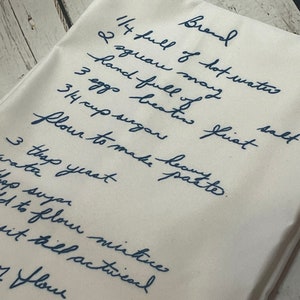 Bread
1/4 full of hot water
2 square marg
hand full of salt
3 eggs beaten first
3/4 cup sugar
flour to make heavy paste
3 tbsp yeast
water
tbsp sugar
to flour mixture
till activated
flour